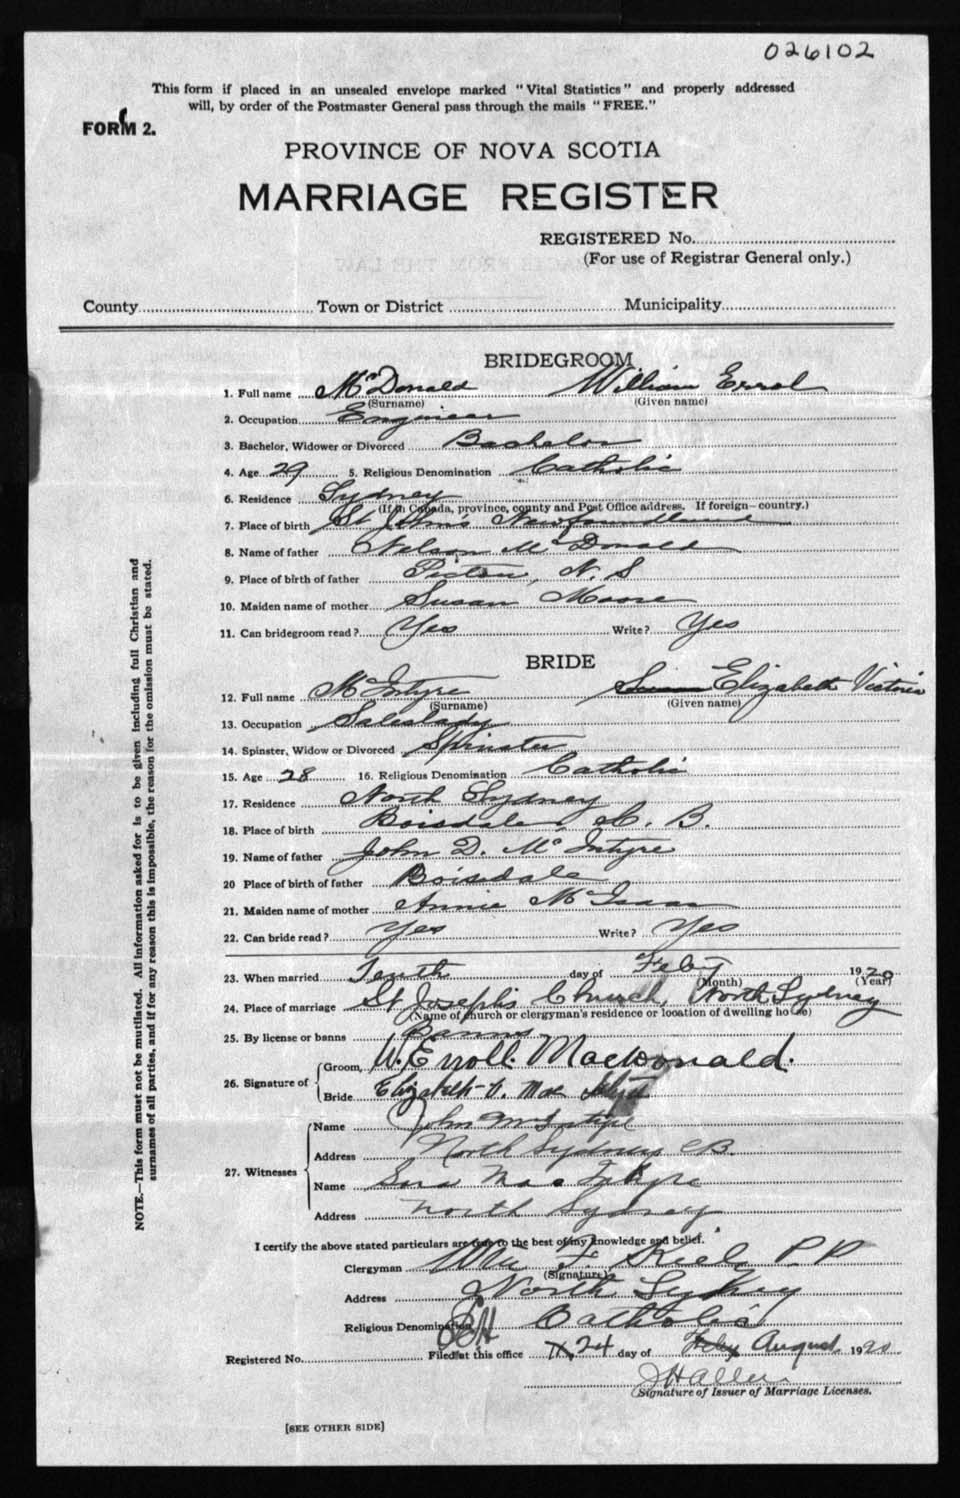 026102
This form if placed in an unsealed envelope marked "Vital Statistics" and properly addressed
will, by order of the Postmaster General pass through the mails "FREE."
FORM 2.
PROVINCE OF NOVA SCOTIA
MARRIAGE REGISTER
REGISTERED No.
(For use of Registrar General only.)
County Town or District Municipality
BRIDEGROOM
1. Full name McDonald William Errol
(Surname) (Given name)
2. Occupation Engineer
3. Bachelor, Widower or Divorced Bachelor
4. Age 29 5. Religious Denomination Catholic
6. Residence Sydney
(If in Canada, province, county and Post Office address. If foreign—country.)
7. Place of birth St John's Newfoundland
8. Name of father Nelson McDonald
9. Place of birth of father Pictou, N.S
10. Maiden name of mother Susan Moore
11. Can bridegroom read? Yes Write? Yes
BRIDE
12. Full name McIntyre Elizabeth Victoria
(Surname) (Given name)
13. Occupation Saleslady
14. Spinster, Widow or Divorced Spinster
15. Age 28 16. Religious Denomination Catholic
17. Residence North Sydney
18. Place of birth Boisdale, C. B.
19. Name of father John D. McIntyre
20 Place of birth of father Boisdale
21. Maiden name of mother Annie McIsaac
22. Can bride read? Yes Write? Yes
23. When married Tenth day of Feby 1920
(Month) (Year)
24. Place of marriage St Joseph's Church, North Sydney
(Name of church or clergyman's residence or location of dwelling house)
25. By license or banns Banns
26. Signature of Groom, W. Erroll. Macdonald.
Bride Elizabeth V. Mac Intyre
27. Witnesses Name John McIntyre
Address North Sydney CB.
Name Sara MacIntyre
Address North Sydney
I certify the above stated particulars are true to the best of my knowledge and belief.
Clergyman Wm F. P.P
(Signature)
Address North Sydney
Religious Denomination Catholic
Registered No. Filed at this office 24 day of Feby August 1920
J H Allen
(Signature of Issuer of Marriage Licenses.
[SEE OTHER SIDE]
NOTE.—This form must not be mutilated. All information asked for is to be given including full Christian and
surnames of all parties, and if for any reason this is impossible, the reason for the omission must be stated.